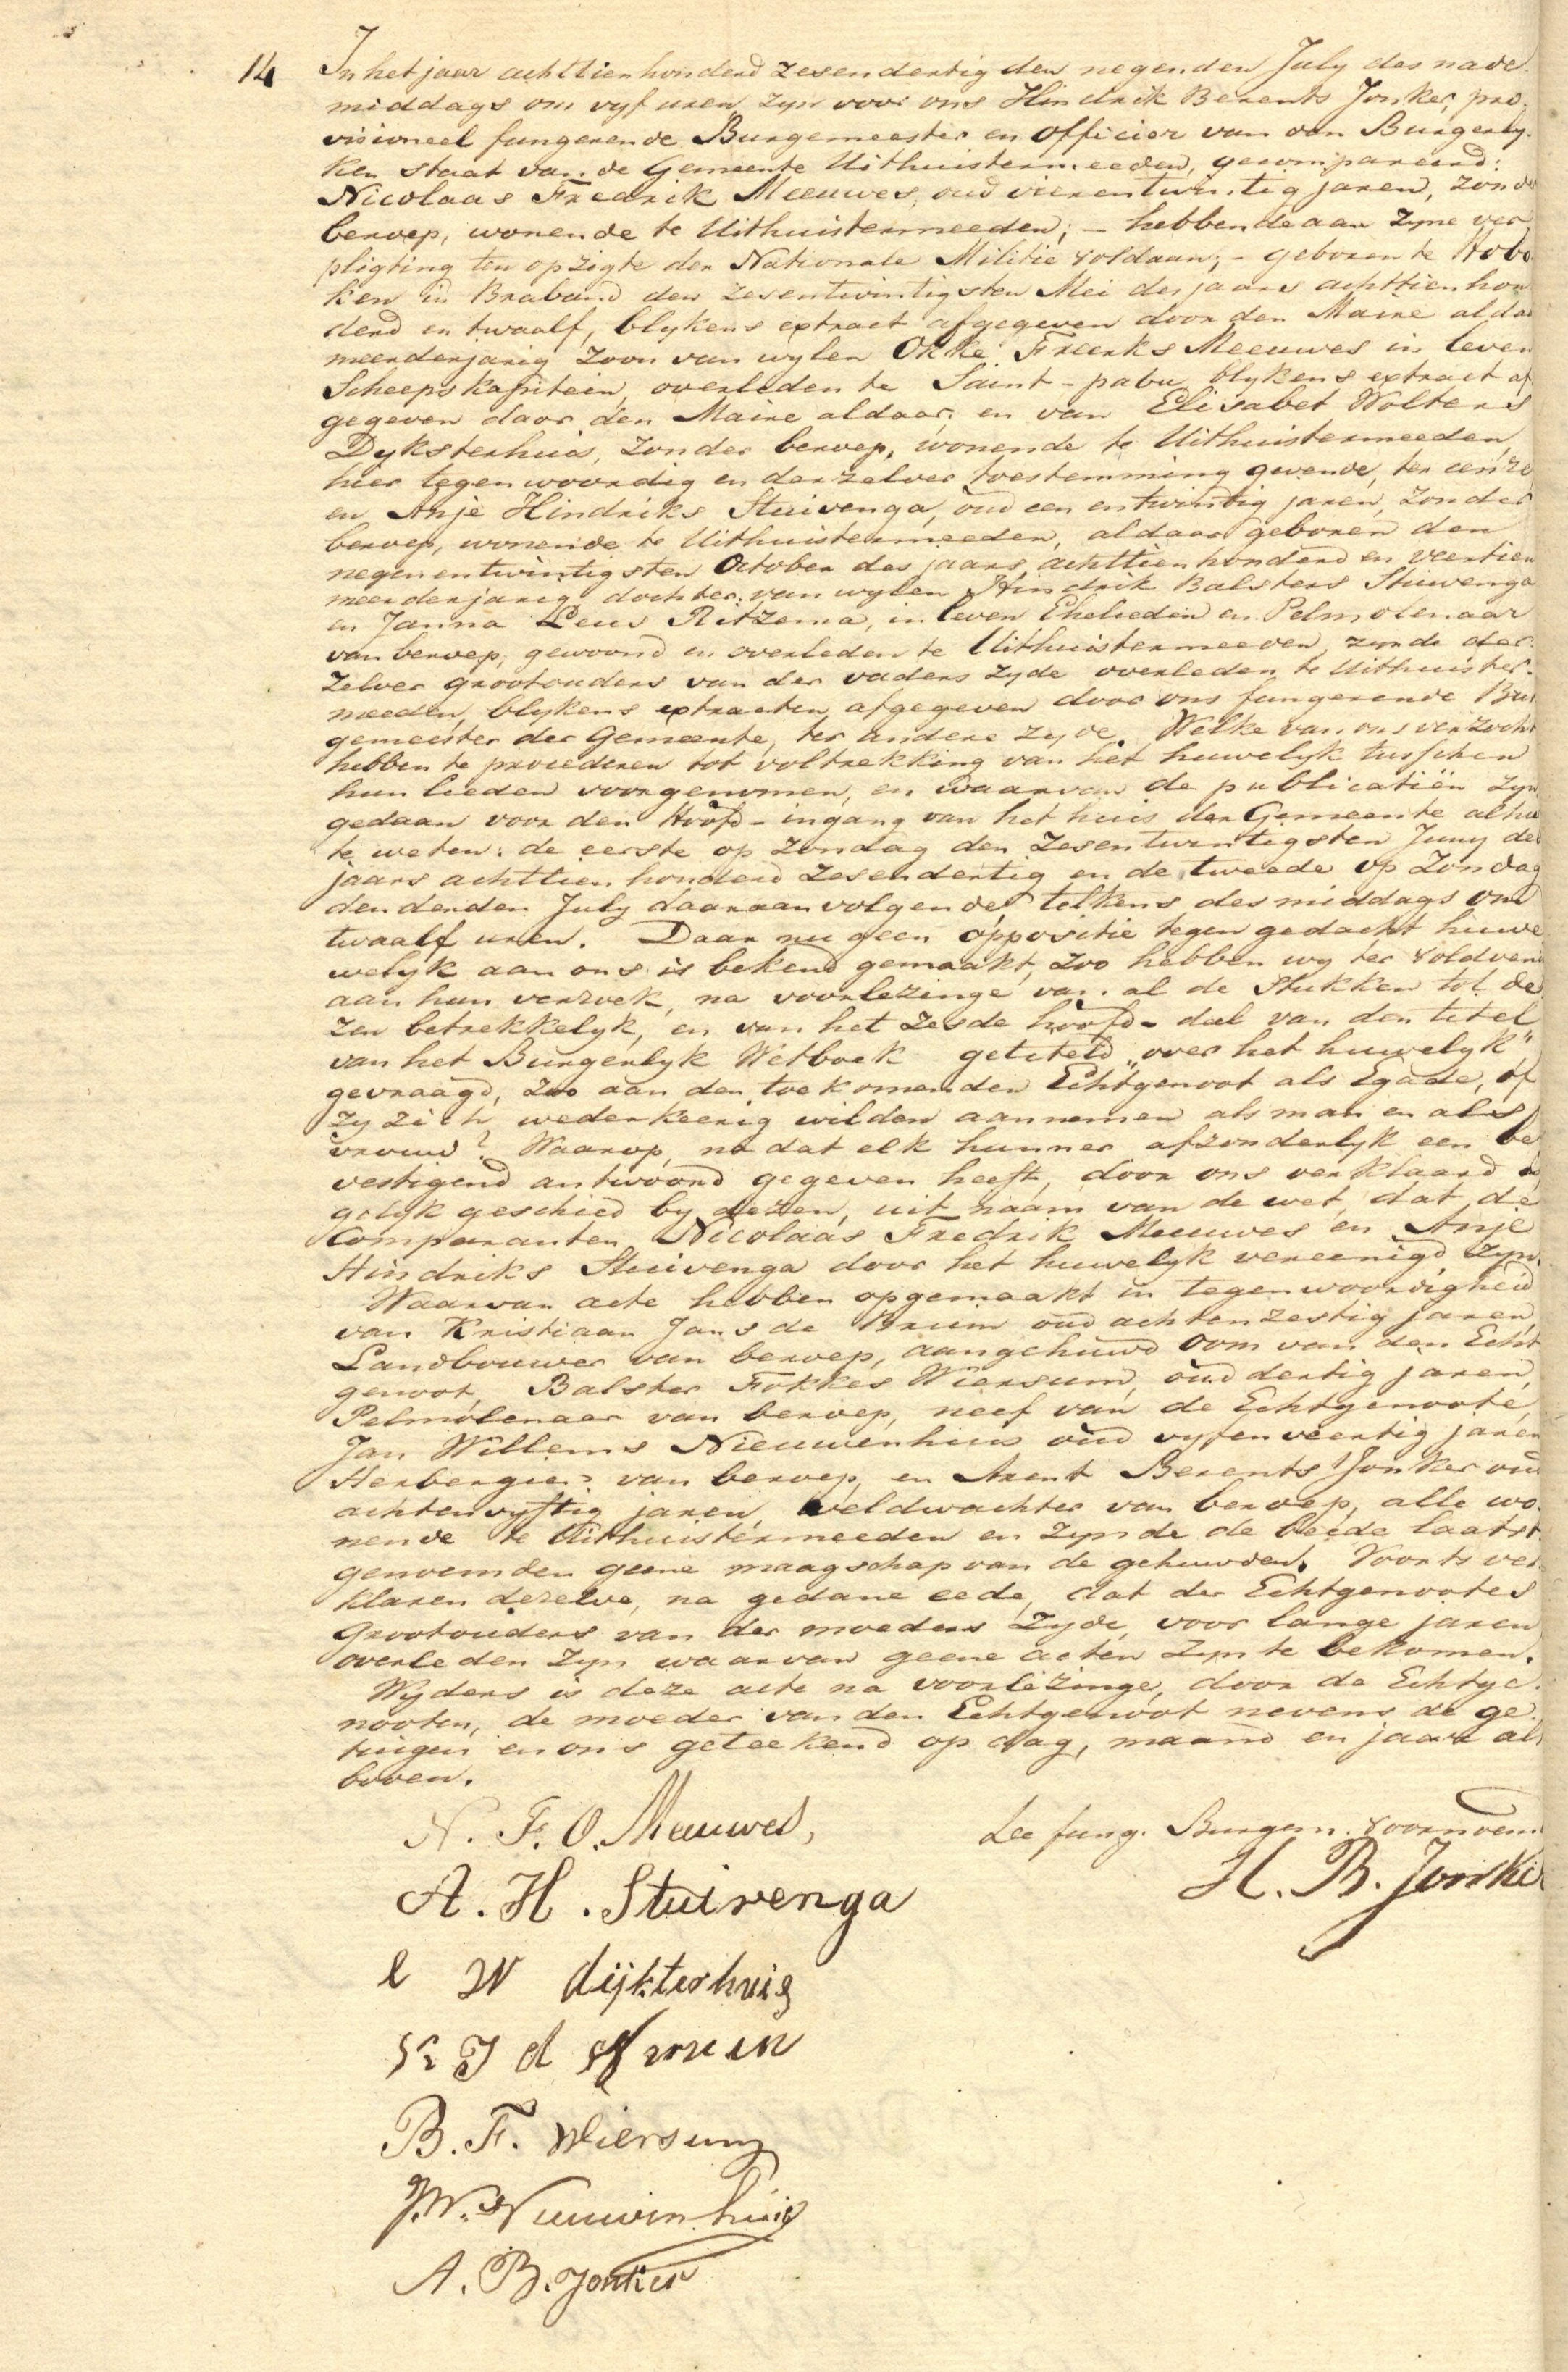 14 In het jaar achttienhonderd zesendertig den negenden July des name
middags om vyf uren zyn voor ons Hindrik Berents Jonker, pro
visioneel fungerende Burgemeester en Officier van den Burgerly
ken staat van de Gemeente Uithuistermeeden, gecompareerd:
Nicolaas Fredrik Meeuwes, oud vierentwintig jaren, zonde
beroep, wonende te Uithuistermeeden; – hebbende aan zyne ver
pligting ten opzigte der Nationale Militie voldaan; – geboren te Hobo
ken in Braband den zesentwintigsten Mei des jaars achttienhon
derd en twaalf, blykens extract afgegeven door den Maire aldaa
meerderjarig zoon van wylen Okke Freerks Meeuwes in leven
Scheepskapitein, overleden te Saint-pabu blykens extract af
gegeven door den Maire aldaar; en van Elisabet Wolters
Dyksterhuis, zonder beroep, wonende te Uithuistermeeden,
hier tegenwoordig en derzelver toestemming gevende, ter eenre
en Anje Hindriks Stuivenga, oud een entwintig jaren, zonder
beroep, wonende te Uithuistermeeden, aldaar geboren den
negenentwintigsten October des jaars achttienhonderd en veertien
meerderjarig dochter van wylen Hindrik Balsters Stuivenga
en Janna Pieus Ritzema, in leven Ehelieden en Pelmolenaar
van beroep, gewoond en overleden te Uithuistermeeden, zynde der
zelver grootouders van der vaders zyde overleden te Uithuister
meeden, blykens extracten afgegeven door ons fungerende Bur
gemeester der Gemeente, ter andere zyde. Welke van ons verzocht
hebben te procederen tot voltrekking van het huwelyk tusschen
hun lieden voorgenomen, en waarvan de publicatiën zyn
gedaan voor den Hoofd-ingang van het huis der Gemeente alhie
te weten: de eerste op zondag den zesentwintigsten Juny des
jaars achttien honderd zesendertig en de tweede op Zondag
den derden July daaraanvolgende, telkens des middags om
twaalf uren. Daar nu geen oppositie tegen gedacht huwe
welyk aan ons is bekend gemaakt, zoo hebben wy ter voldoeni
aan hun verzoek, na voorlezinge van al de Stukken tot de
zen betrekkelyk, en van het zesde hoofd-deel van den titel
van het Burgerlyk Wetboek getiteld „over het huwelyk”,
gevraagd, zoo aan den toekomenden Echtgenoot als Egade, of
zy zich wederkeerig wilden aannemen als man en als
vrouw? Waarop, na dat elk hunner afzonderlyk een be
vestigend antwoord gegeven heeft, door ons verklaard is
gelyk geschied by dezen, uit naam van de wet, dat de
Comparanten Nicolaas Fredrik Meeuwes en Anje
Hindriks Stuivenga door het huwelyk vereenigd zyn.
Waarvan acte hebben opgemaakt in tegenwoordigheid
van Kristiaan Jans de Bruin oud achtenzestig jaren,
Landbouwer van beroep, aangehuwd oom van den Echt
genoot, Balster Fokkes Wiersum, oud dertig jaren,
Pelmolenaar van beroep, neef van de Echtgenoote,
Jan Willems Nieuwenhuis oud vyfenveertig jaren
Herbergier van beroep, en Arent Berents Jonker oud
achtenvyftig jaren, veldwachter van beroep, alle wo
nende te Uithuistermeeden en zynde de beide laatst
genoemden geene maagschap van de gehuwden. Voorts ver
klaren dezelve, na gedane eede, dat der Echtgenootes
Grootouders van der moeders zyde, voor lange jaren
overleden zyn waarvan geene acten zyn te bekomen.
Wyders is deze acte na voorlezinge, door de Echtge
nooten, de moeder van den Echtgenoot nevens de ge
tuigen en ons geteekend op dag, maand en jaar als
boven.
N. F. O. Meeuwes,
De fung. Burgem. voornoem
A. H. Stuivenga
H. B. Jonker
e W dijksterhuis
K J d Bruin
B. F. Wiersum
J. W. Nieuwenhuis
A. B. Jonker